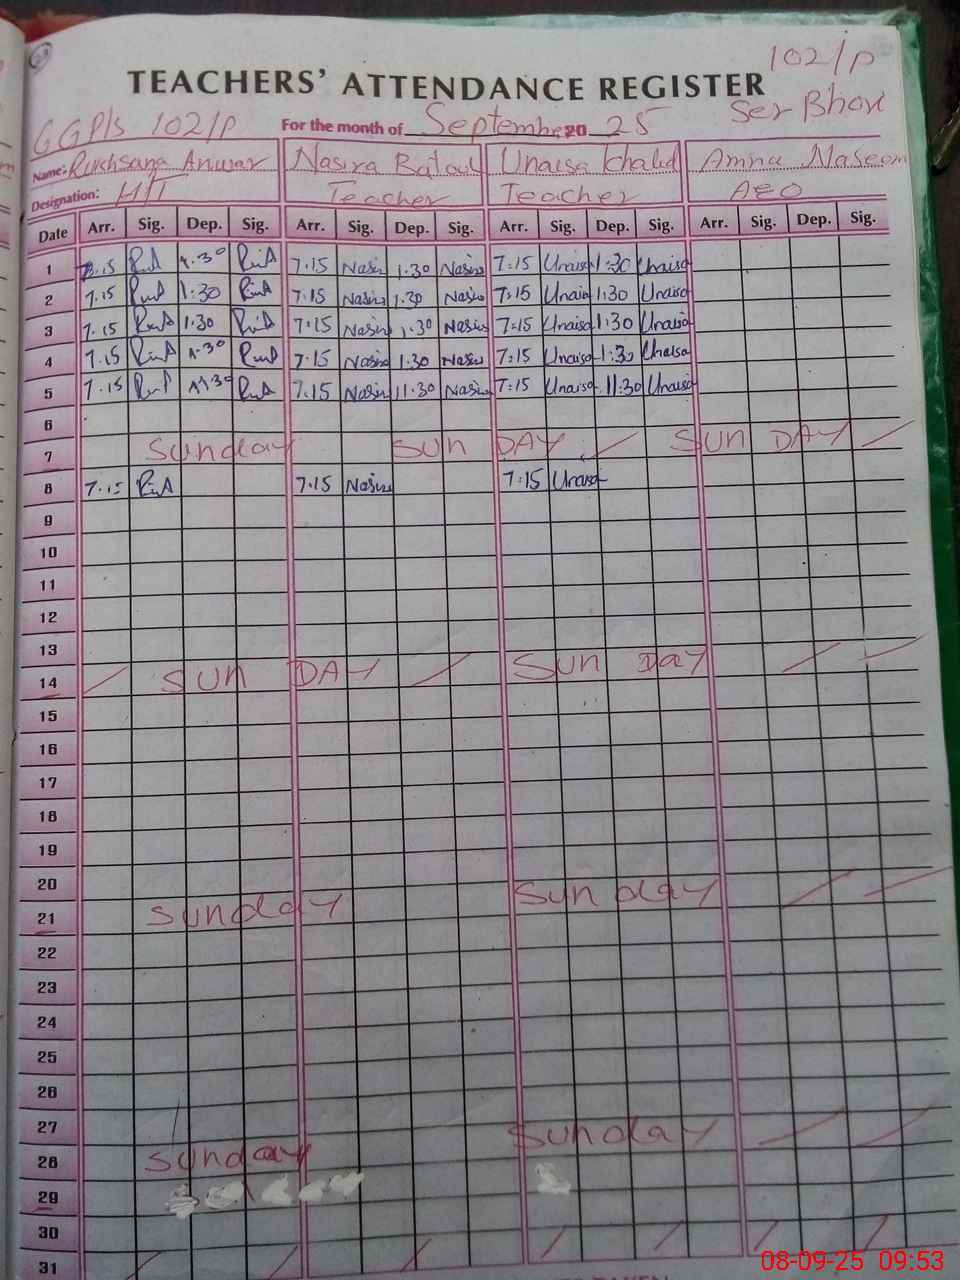 23
102/P
TEACHERS' ATTENDANCE REGISTER
GGP/s 102/P For the month of September 20 25 Ser Bhari
Name: Rukhsana Anwar Nasira Batool Unaisa Khalid Amna Naseem
Designation: HT Teacher Teacher AEO
Date Arr. Sig. Dep. Sig. Arr. Sig. Dep. Sig. Arr. Sig. Dep. Sig. Arr. Sig. Dep. Sig.
1 7.15 1.30 7.15 Nasira 1.30 Nasira 7:15 Unaisa 1:30 Unaisa
2 7.15 1:30 7.15 Nasira 1.30 Nasira 7:15 Unaisa 1:30 Unaisa
3 7.15 1.30 7:15 Nasira 1.30 Nasira 7:15 Unaisa 1:30 Unaisa
4 7.15 1.30 7.15 Nasira 1.30 Nasira 7:15 Unaisa 1:30 Unaisa
5 7.15 11.30 7.15 Nasira 11.30 Nasira 7:15 Unaisa 11:30 Unaisa
6
7 Sunday SUN DAY SUN DAY
8 7.15 7.15 Nasira 7:15 Unaisa
9
10
11
12
13
14 SUN DAY SUN Day
15
16
17
18
19
20
21 Sunday Sunday
22
23
24
25
26
27
28 Sunday Sunday
29
30
31
08-09-25 09:53